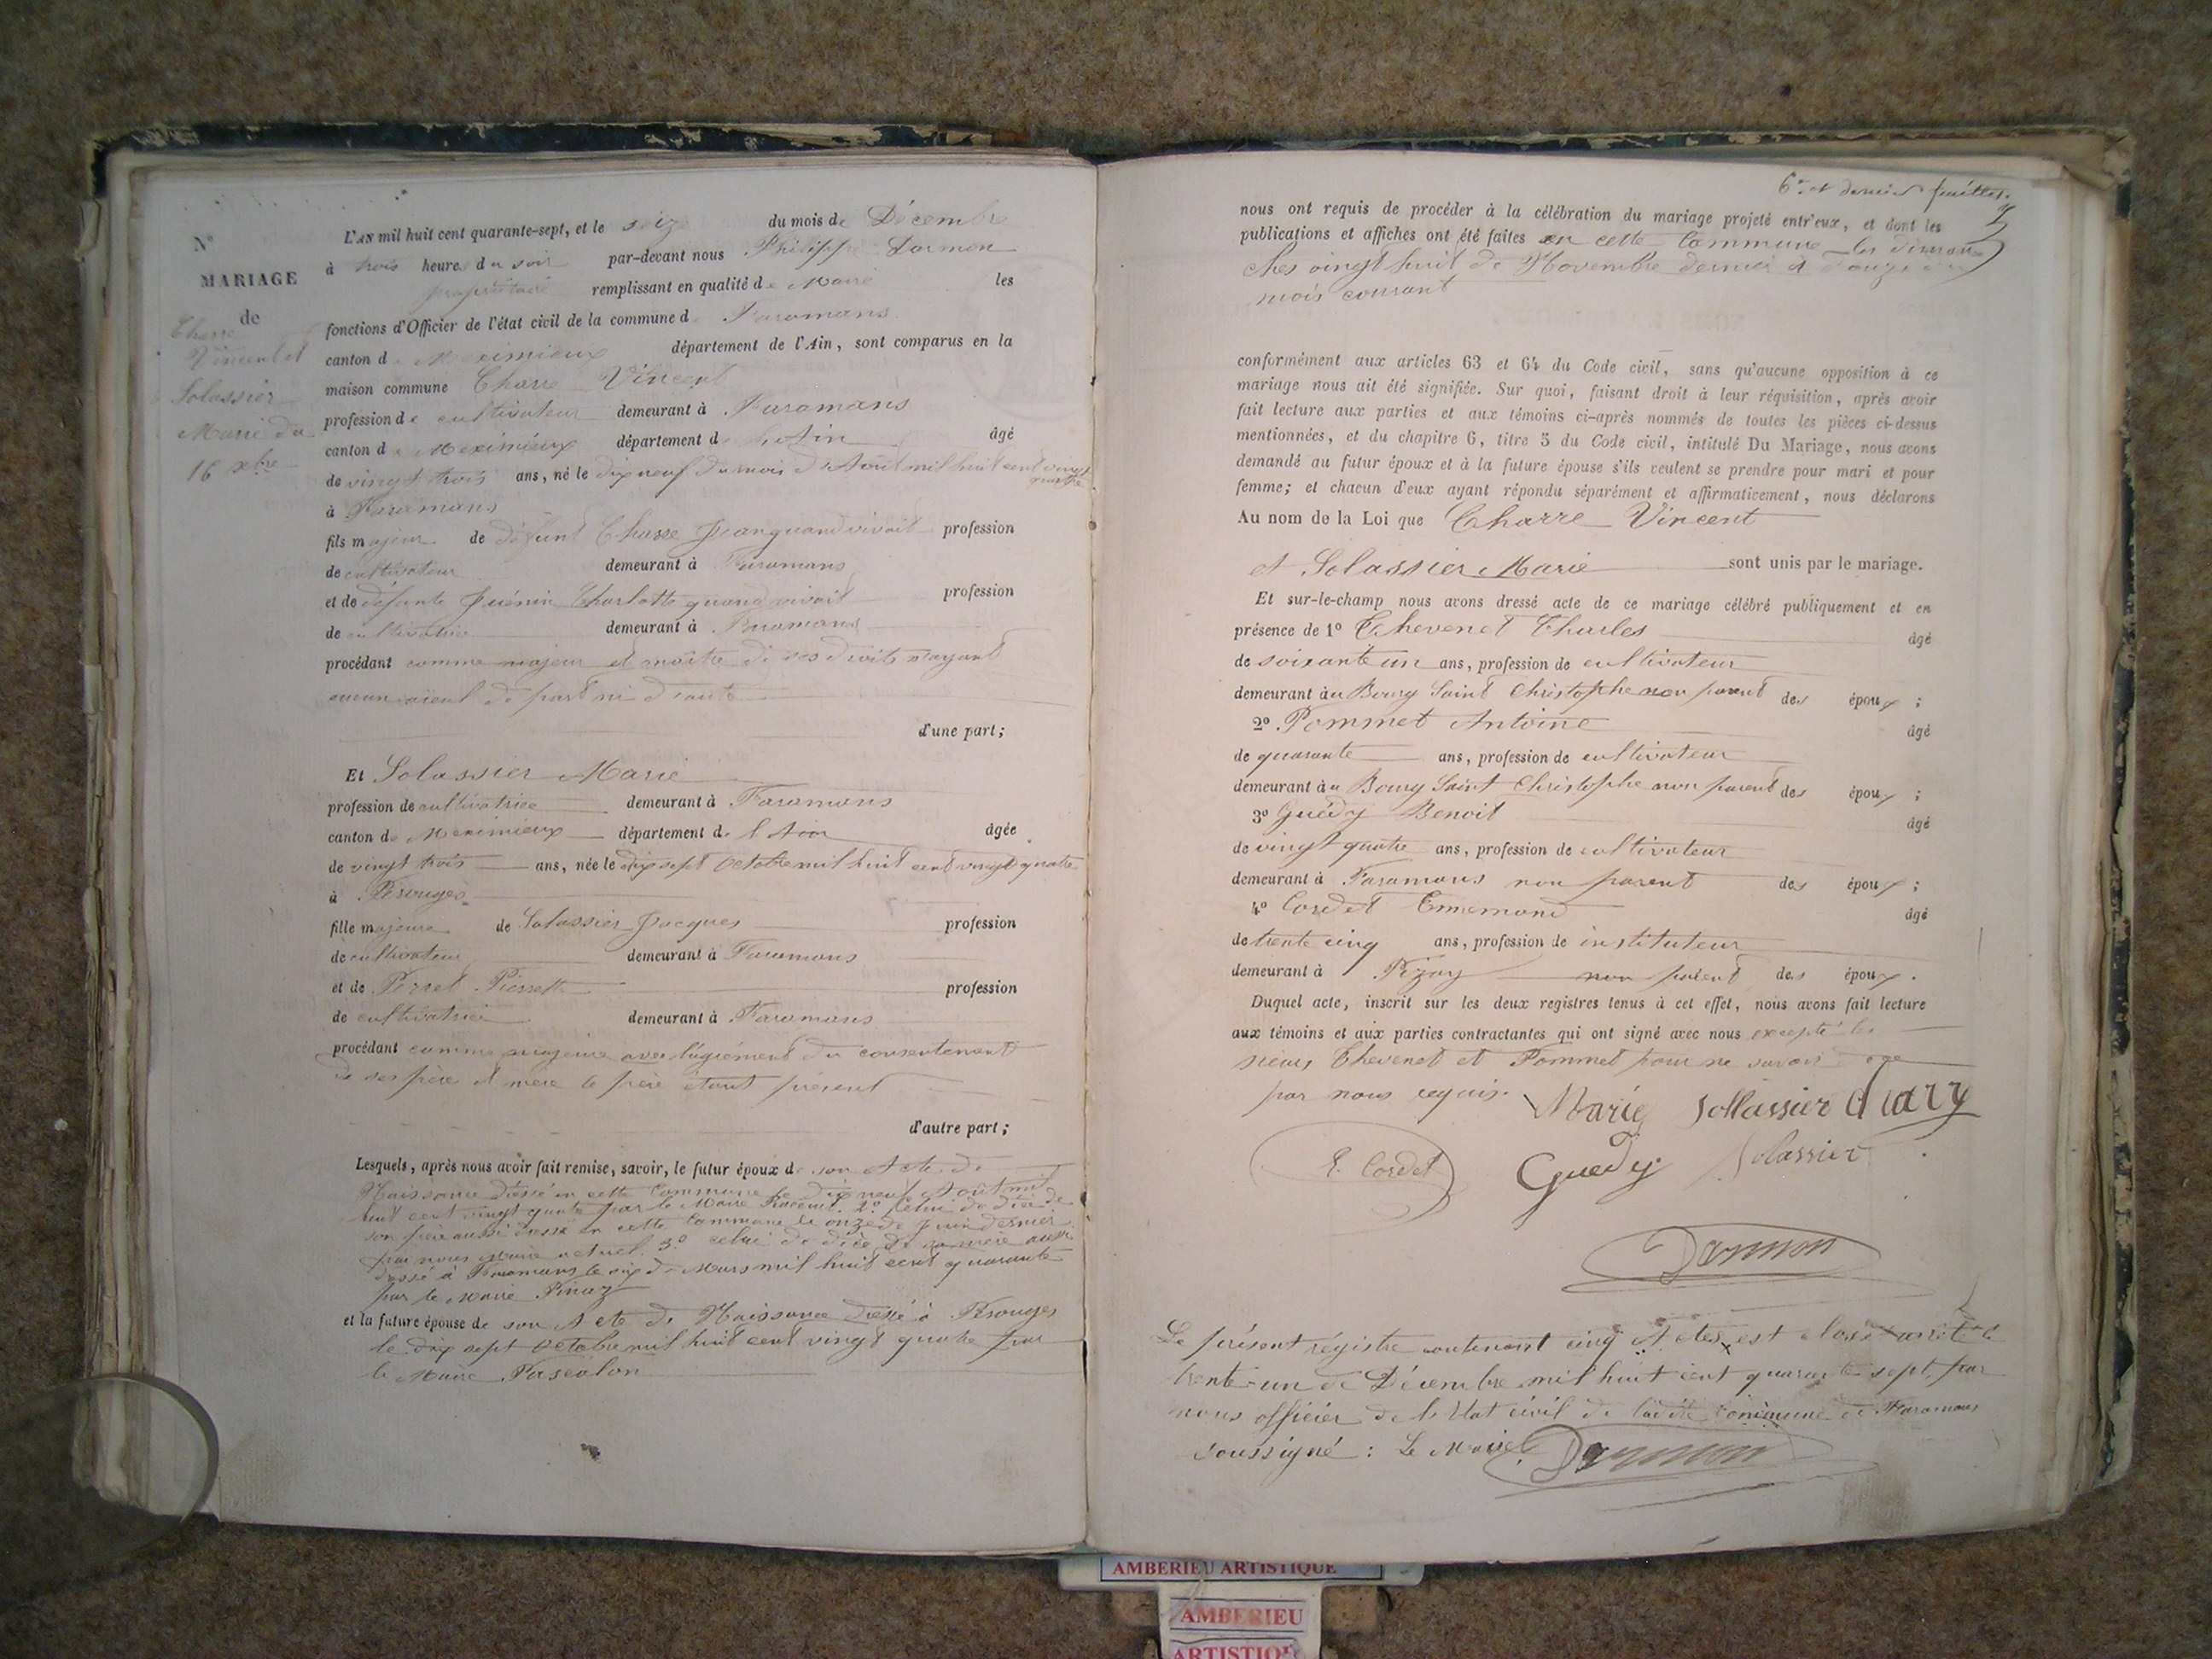 N°
MARIAGE
de
Charre
Vincent et
Solassier
Marie du
16 xbre
L'AN mil huit cent quarante-sept, et le seize du mois de Décembre
à trois heures du soir par-devant nous Philippe Darmon
propriétaire remplissant en qualité de Maire les
fonctions d'Officier de l'état civil de la commune de Faramans
canton de Meximieux département de l'Ain, sont comparus en la
maison commune Charre Vincent
profession de cultivateur demeurant à Faramans
canton de Meximieux département de l'Ain âgé
de vingt trois ans, né le dix neuf du mois d'Août mil huit cent vingt
quatre
à Faramans
fils majeur de défunt Charre Jean quand vivait profession
de cultivateur demeurant à Faramans
et de défunte Juénin Charlotte quand vivait profession
de cultivatrice demeurant à Faramans
procédant comme majeur et maître de ses droits n'ayant
aucun aïeul de part ni d'autre
d'une part;
Et Solassier Marie
profession de cultivatrice demeurant à Faramans
canton de Meximieux département de l'Ain âgée
de vingt trois ans, née le dix sept Octobre mil huit cent vingt quatre
à Pérouges
fille majeure de Solassier Jacques profession
de cultivateur demeurant à Faramans
et de Perret Pierrette profession
de cultivatrice demeurant à Faramans
procédant comme majeure avec l'agrément du consentement
de ses père et mère le père étant présent
d'autre part;
Lesquels, après nous avoir fait remise, savoir, le futur époux de son Acte de
Naissance dressé en cette Commune le dix neuf Août mil
huit cent vingt quatre par le Maire 2° celui de décès de
son père aussi dressé en cette Commune le onze de Juin dernier
par nous Maire actuel. 3° celui de décès de sa mère aussi
dressé à Faramans le six de Mars mil huit cent quarante
par le Maire Pinaz
et la future épouse de son Acte de Naissance dressé à Pérouges
le dix sept Octobre mil huit cent vingt quatre par
le Maire Pascalon
6e et dernier feuillet.
nous ont requis de procéder à la célébration du mariage projeté entr'eux, et dont les
publications et affiches ont été faites en cette Commune les diman
ches vingt huit de Novembre dernier et douze du
mois courant
conformément aux articles 63 et 64 du Code civil, sans qu'aucune opposition à ce
mariage nous ait été signifiée. Sur quoi, faisant droit à leur réquisition, après avoir
fait lecture aux parties et aux témoins ci-après nommés de toutes les pièces ci-dessus
mentionnées, et du chapitre 6, titre 5 du Code civil, intitulé Du Mariage, nous avons
demandé au futur époux et à la future épouse s'ils veulent se prendre pour mari et pour
femme; et chacun d'eux ayant répondu séparément et affirmativement, nous déclarons
Au nom de la Loi que Charre Vincent
et Solassier Marie sont unis par le mariage.
Et sur-le-champ nous avons dressé acte de ce mariage célébré publiquement et en
présence de 1° Thevenet Charles âgé
de soixante un ans, profession de cultivateur
demeurant à u Bourg Saint Christophe non parent des époux ;
2° Pommet Antoine âgé
de quarante ans, profession de cultivateur
demeurant à u Bourg Saint Christophe non parent des époux ;
3° Guédy Benoit âgé
de vingt quatre ans, profession de cultivateur
demeurant à Faramans non parent des époux ;
4° Cordet Ennemond âgé
de trente cinq ans, profession de instituteur
demeurant à Pizay non parent des époux .
Duquel acte, inscrit sur les deux registres tenus à cet effet, nous avons fait lecture
aux témoins et aux parties contractantes qui ont signé avec nous excepté les
sieurs Thevenet et Pommet pour ne savoir
par nous requis.
Marie Sollassier
E. Cordet Guedy Solassier
Darmon
Le présent régistre contenant cinq Actes est clos et arrêté le
trente-un de Décembre mil huit cent quarante sept, par
nous officier de l'Etat civil de la dite commune de Faramans
soussigné : Le Maire Darmon
AMBERIEU ARTISTIQUE
AMBERIEU
ARTISTIQUE